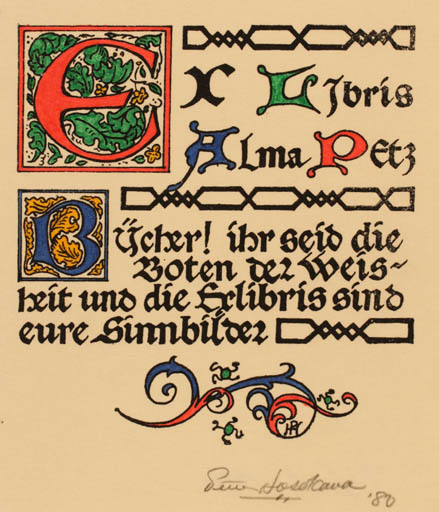 Ex Libris
Alma Petz
Bücher! ihr seid die
Boten der Weis~
heit und die Exlibris sind
eure Sinnbilder
Hosokawa
'80